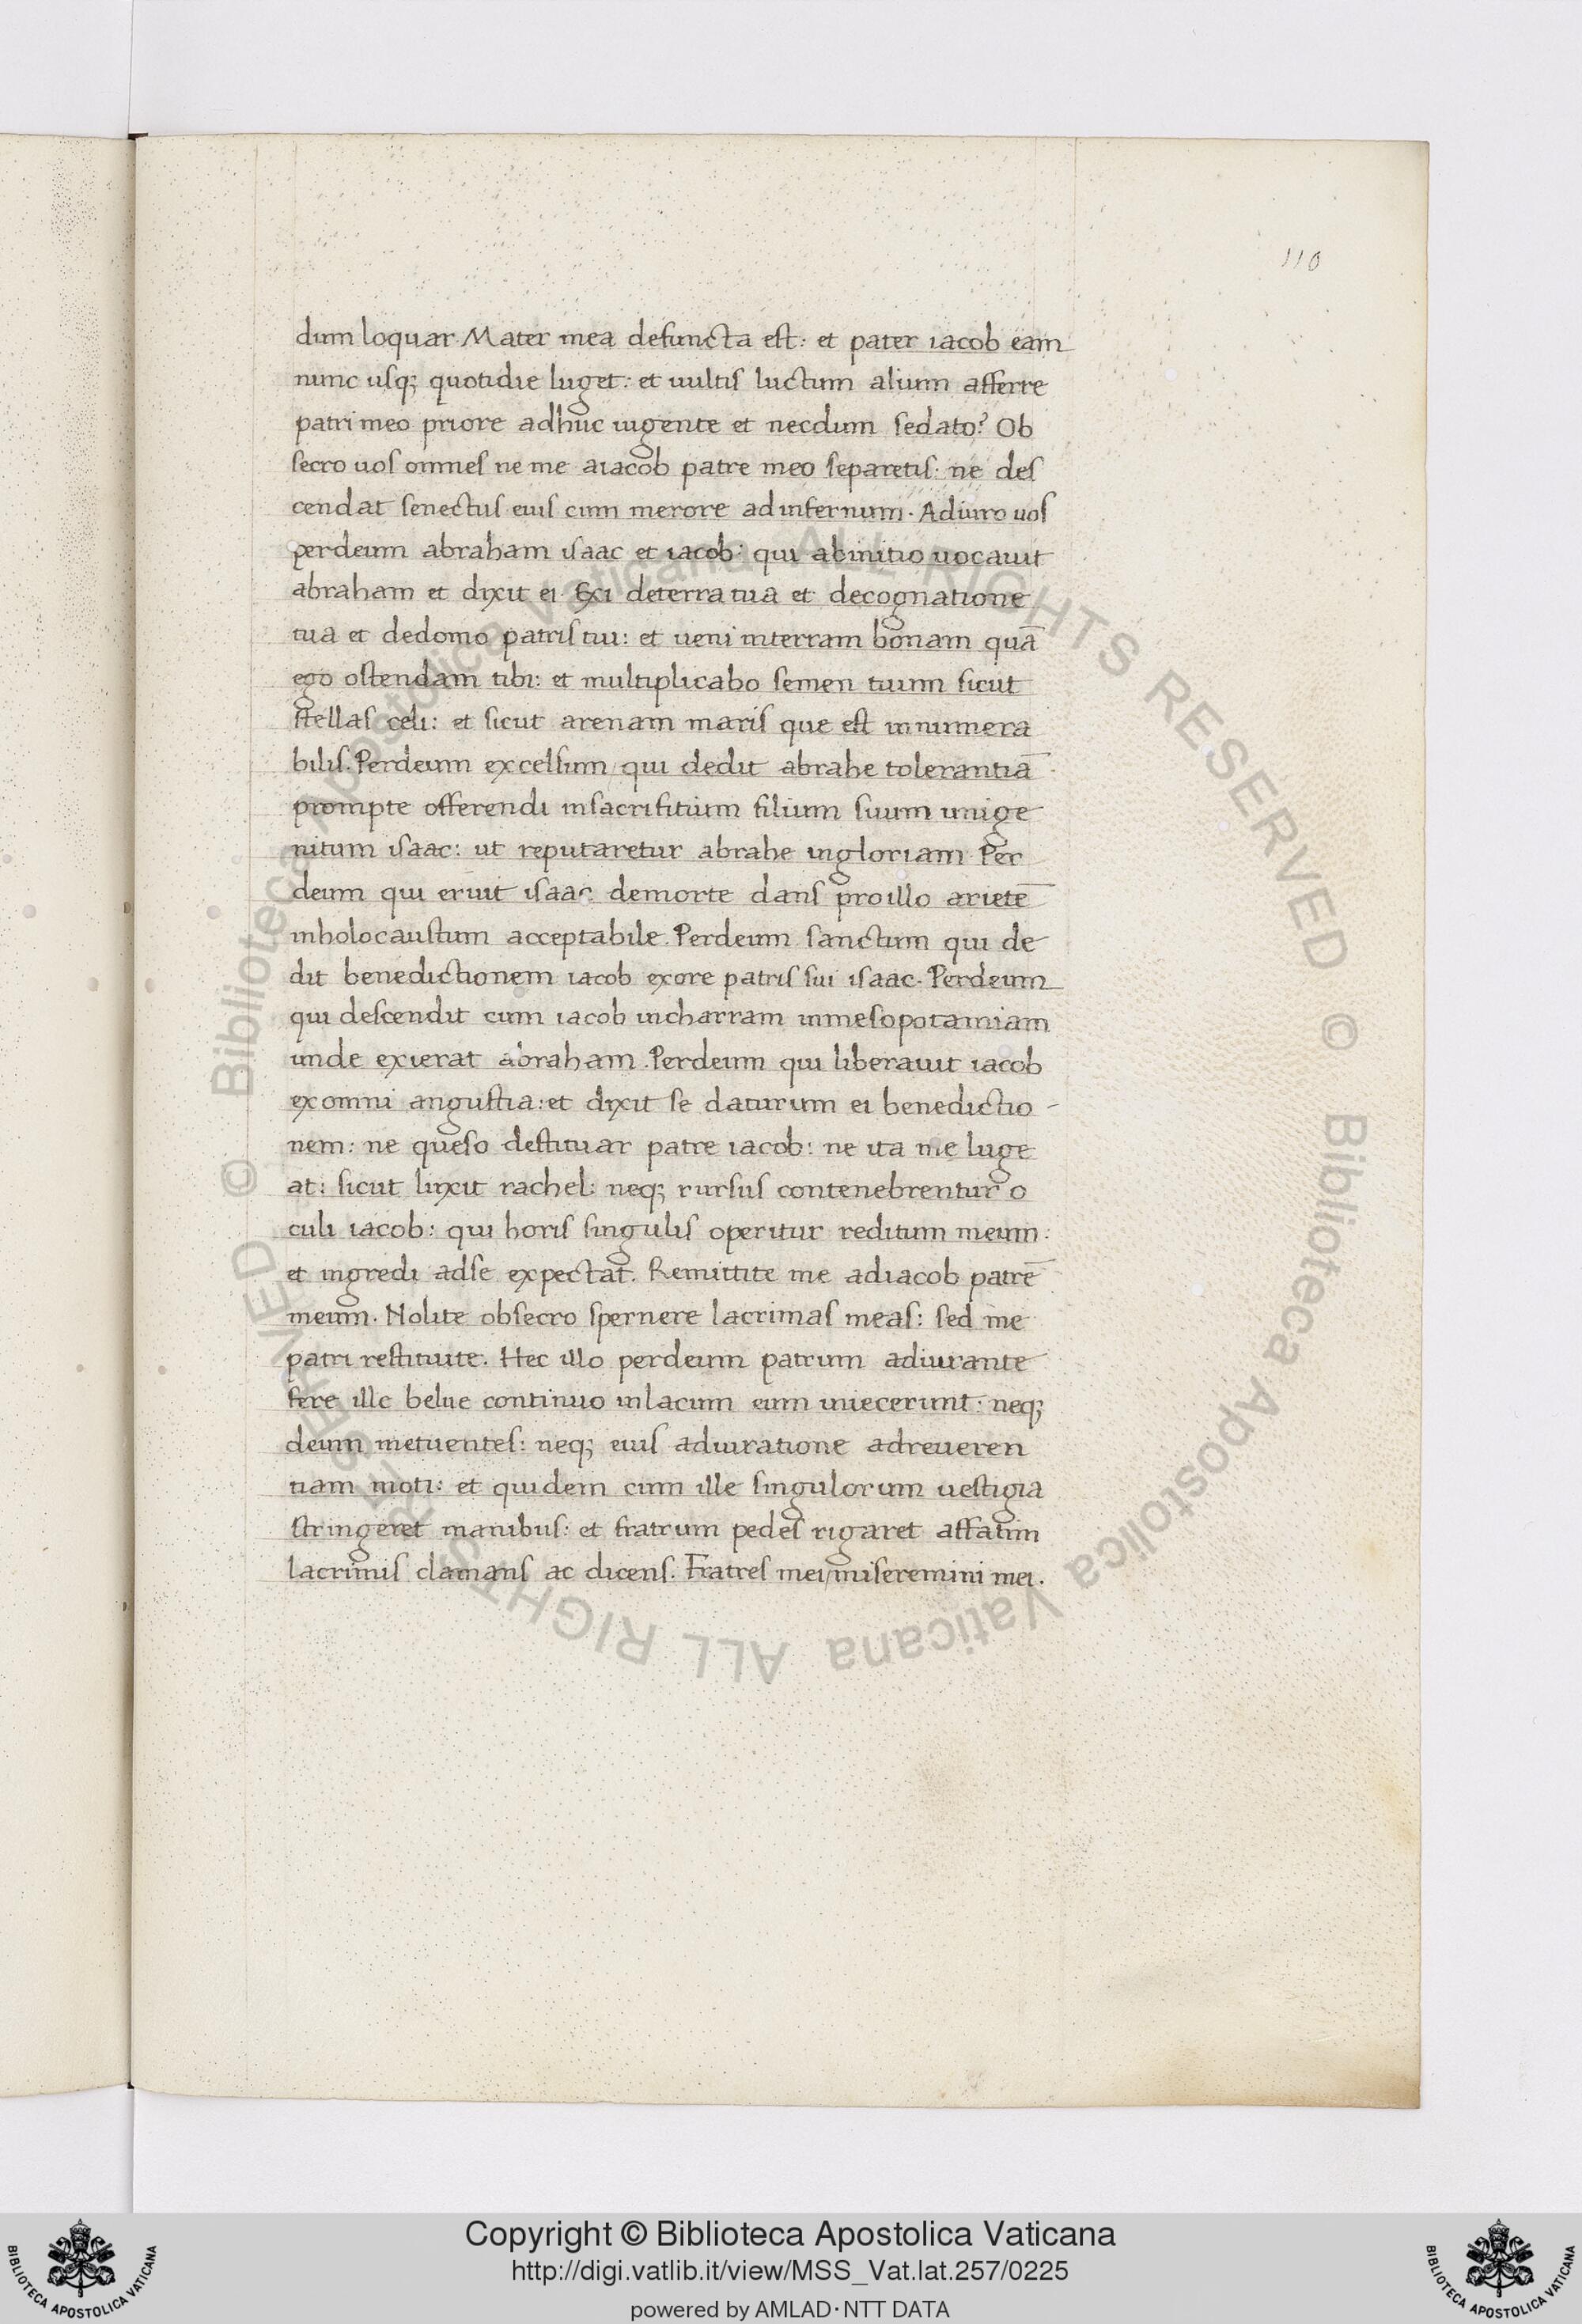 110
dum loquar. Mater mea defuncta est: et pater iacob eam
nunc usq; quotidie luget: et uultis luctum alium afferre
patri meo priore adhuc iugente et necdum sedato? Ob
secro uos omnes ne me aiacob patre meo separetis: ne des
cendat senectus eius cum merore adinfernum. Adiuro uos
perdeum abraham isaac et iacob: qui abinitio uocauit
abraham et dixit ei. Exi deterra tua et decognatione
tua et dedomo patris tui: et ueni interram bonam quā
ego ostendam tibi: et multiplicabo semen tuum sicut
stellas celi: et sicut arenam maris que est innumera
bilis. Perdeum excelsum/ qui dedit abrahe tolerantiā
prompte offerendi insacrifitium filium suum unige
nitum isaac: ut reputaretur abrahe ingloriam. Per
deum qui eruit isaac demorte dans proillo arietē
inholocaustum acceptabile. Perdeum sanctum qui de
dit benedictionem iacob exore patris sui isaac. Perdeum
qui descendit cum iacob incharram inmesopotamiam
unde exierat abraham. Perdeum qui liberauit iacob
exomni angustia: et dixit se daturum ei benedictio-
nem: ne queso destituar patre iacob: ne ita me luge
at: sicut luxit rachel: neq; rursus contenebrentur o
culi iacob: qui horis singulis operitur reditum meum:
et ingredi adse expectat. Remittite me adiacob patrē
meum. Nolite obsecro spernere lacrimas meas: sed me
patri restituite. Hec illo perdeum patrum adiurante
fere ille belue continuo inlacum eum iniecerunt: neq;
deum metuentes: neq; eius adiuratione adreueren
tiam moti: et quidem cum ille singulorum uestigia
stringeret manibus: et fratrum pedes rigaret affatim
lacrimis clamans ac dicens. Fratres mei/ miseremini mei.
© Biblioteca Apostolica Vaticana ALL RIGHTS RESERVED © Biblioteca Apostolica Vaticana ALL RIGHTS RESERVED
Copyright © Biblioteca Apostolica Vaticana
http://digi.vatlib.it/view/MSS_Vat.lat.257/0225
powered by AMLAD·NTT DATA
BIBLIOTECA APOSTOLICA VATICANA
BIBLIOTECA APOSTOLICA VATICANA